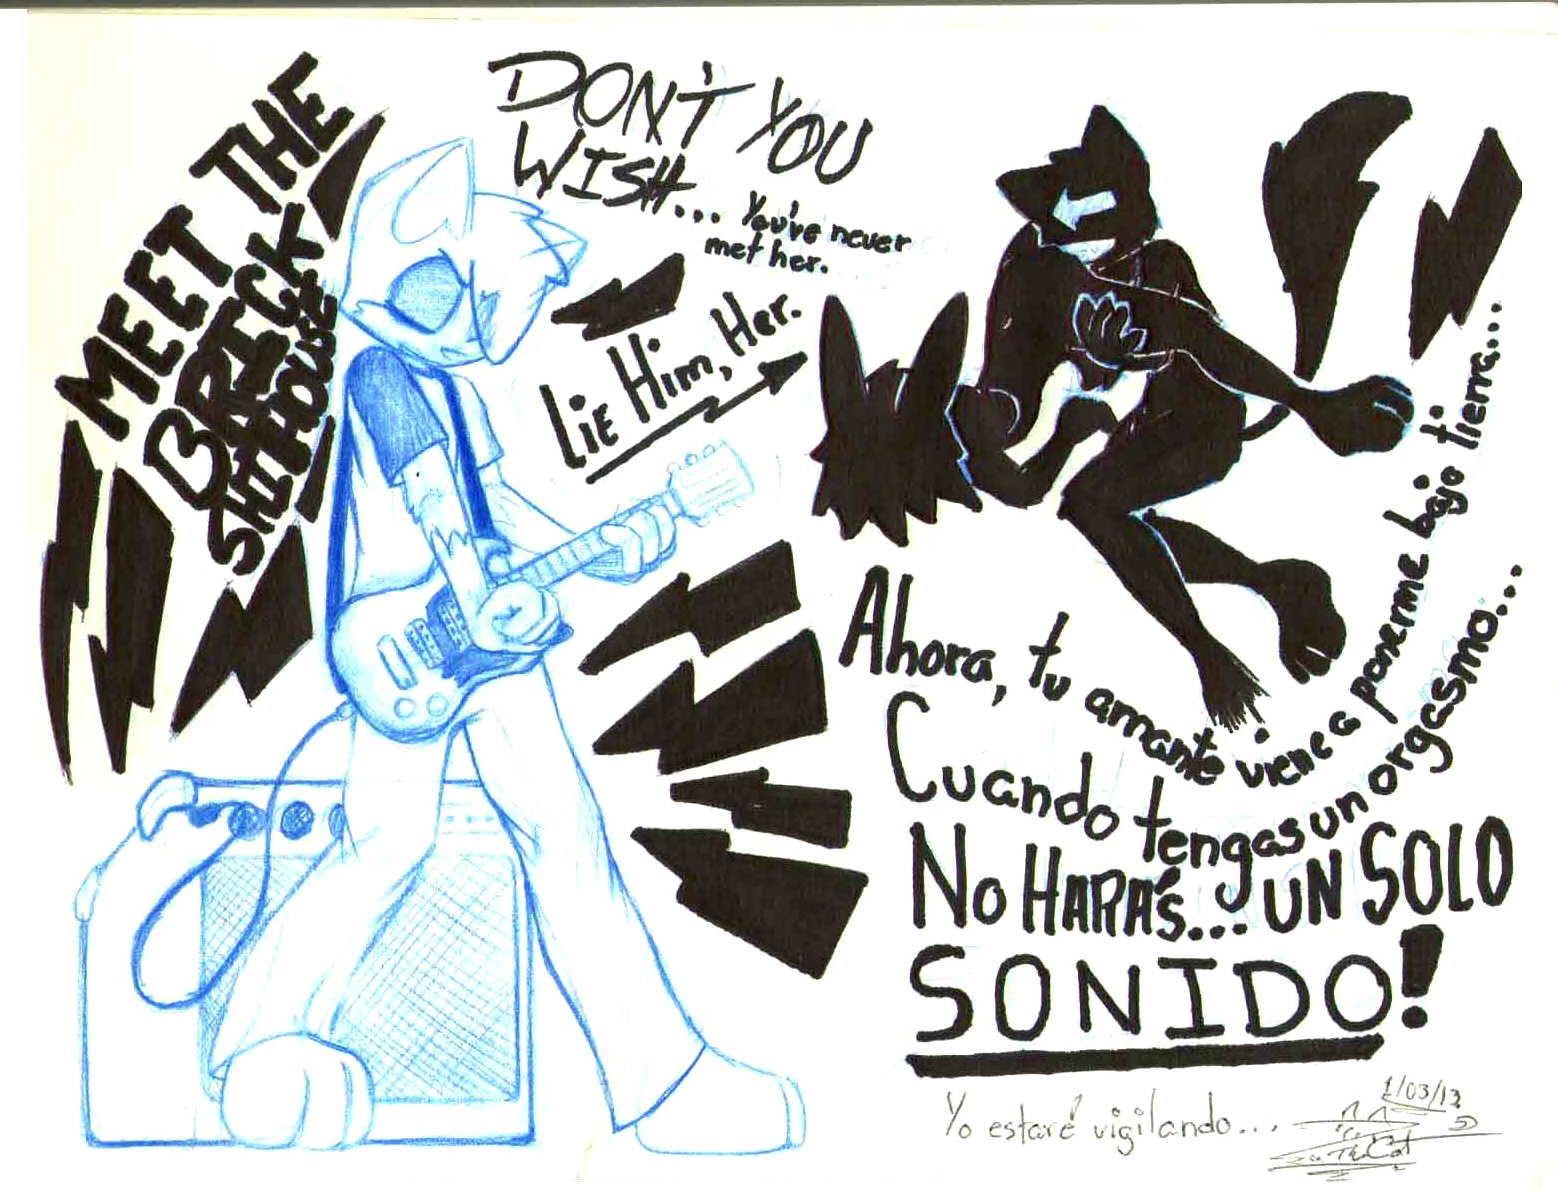 MEET THE
BRICK
SHITHOUSE
DON'T YOU
WISH...
You've never
met her.
Lie Him, Her.
Ahora, tu amante viene a ponerme bajo tierra...
Cuando tengas un orgasmo...
No HARÁS... UN SOLO
SONIDO!
Yo estaré vigilando...
1/03/13
TheCat